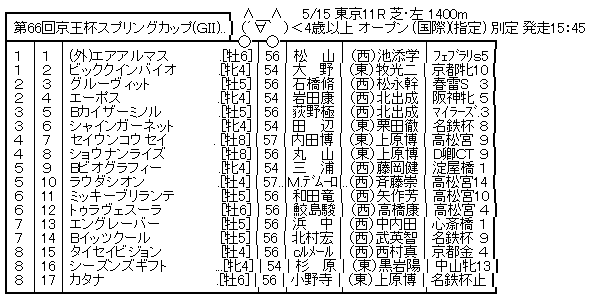 第66回京王杯スプリングカップ(GII).. (´∀`) 5/15 東京11R 芝・左 1400m
<4歳以上 オープン (国際)(指定) 別定 発走15:45
1 1 (外)エアアルマス ..[牡6] 56 松 山 (西)池添学 フェブラリs5
1 2 ビッククインバイオ ..[牝4] 54 大 野 (東)牧光二 京都牝10
2 3 グルーヴィット ..[牡5] 56 石橋脩 (西)松永幹 春雷S 3
2 4 エーポス ..[牝4] 54 岩田康 (西)北出成 阪神牝 5
3 5 Bカイザーミノル ..[牡5] 56 荻野極 (西)北出成 マイラーズ.3
3 6 シャインガーネット ..[牝4] 54 田 辺 (東)栗田徹 名鉄杯 8
4 7 セイウンコウセイ ..[牡8] 57 内田博 (東)上原博 高松宮 9
4 8 ショウナンライズ ..[牡8] 56 丸 山 (東)上原博 D卿CT 9
5 9 Bビオグラフィー ..[牝4] 54 三 浦 (西)藤岡健 淀屋橋 1
5 10 ラウダシオン ..[牡4] 57.. M.デムーロ (西)斉藤崇 高松宮14
6 11 ミッキーブリランテ ..[牡5] 56 和田竜 (西)矢作芳 高松宮10
6 12 トゥラヴェスーラ ..[牡6] 56 鮫島駿 (西)高橋康 高松宮 4
7 13 エングレーバー ..[牡5] 56 浜 中 (西)中内田 心斎橋 1
7 14 Bイッツクール ..[牡5] 56 北村宏 (西)武英智 名鉄杯 9
8 15 タイセイビジョン ..[牡4] 56 cルメール (西)西村真 京都金 4
8 16 シーズンズギフト ...[牝4] 54 杉 原 (東)黒岩陽 中山牝13
8 17 カタナ ..[牡6] 56 小野寺 (東)上原博 名鉄杯止